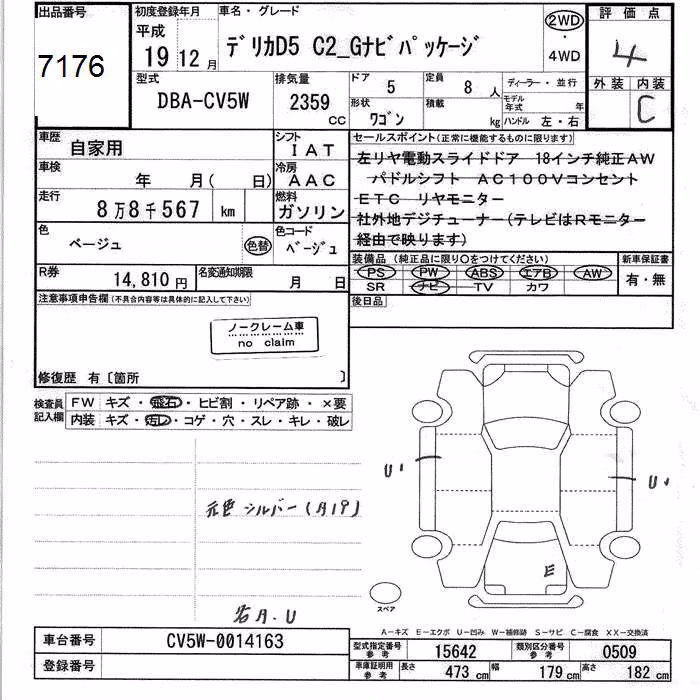 出品番号
7176
初度登録年月
平成
19 12月
車名・グレード
デリカD5 C2_Gナビパッケージ
2WD
・
4WD
評価点
4
外装 内装
C
型式
DBA-CV5W
排気量
2359
CC
ドア 5
定員 8 人
ディーラー・並行
形状 ワゴン
積載 kg
モデル年式 年
ハンドル 左・右
車歴
自家用
シフト
IAT
車検
年 月( 日)
冷房
AAC
走行
8万8千567 km
燃料
ガソリン
色
ベージュ
色替
色コード
ベージュ
R券
14,810円
名変通知期限
月 日
セールスポイント(正常に機能するものに限ります)
左リヤ電動スライドドア 18インチ純正AW
パドルシフト AC100Vコンセント
ETC リヤモニター
社外地デジチューナー(テレビはRモニター
経由で映ります)
装備品 (純正品に限り○をつけてください)
PS PW ABS エアB AW
SR ナビ TV カワ
新車保証書
有・無
後日品
注意事項申告欄(不具合内容等は具体的に記入して下さい)
ノークレーム車
no claim
修復歴 有〔箇所 〕
検査員
記入欄
FW キズ・飛石・ヒビ割・リペア跡・×要
内装 キズ・汚レ・コゲ・穴・スレ・キレ・破レ
元色 シルバー(A19)
右A.U
U'
U'
E
スペア
A－キズ E－エクボ U－凹み W－補修跡 S－サビ C－腐食 XX－交換済
車台番号
CV5W-0014163
登録番号
型式指定番号
参考
15642
類別区分番号
参考
0509
車庫証明用
参考
長さ 473 cm
幅 179 cm
高さ 182 cm